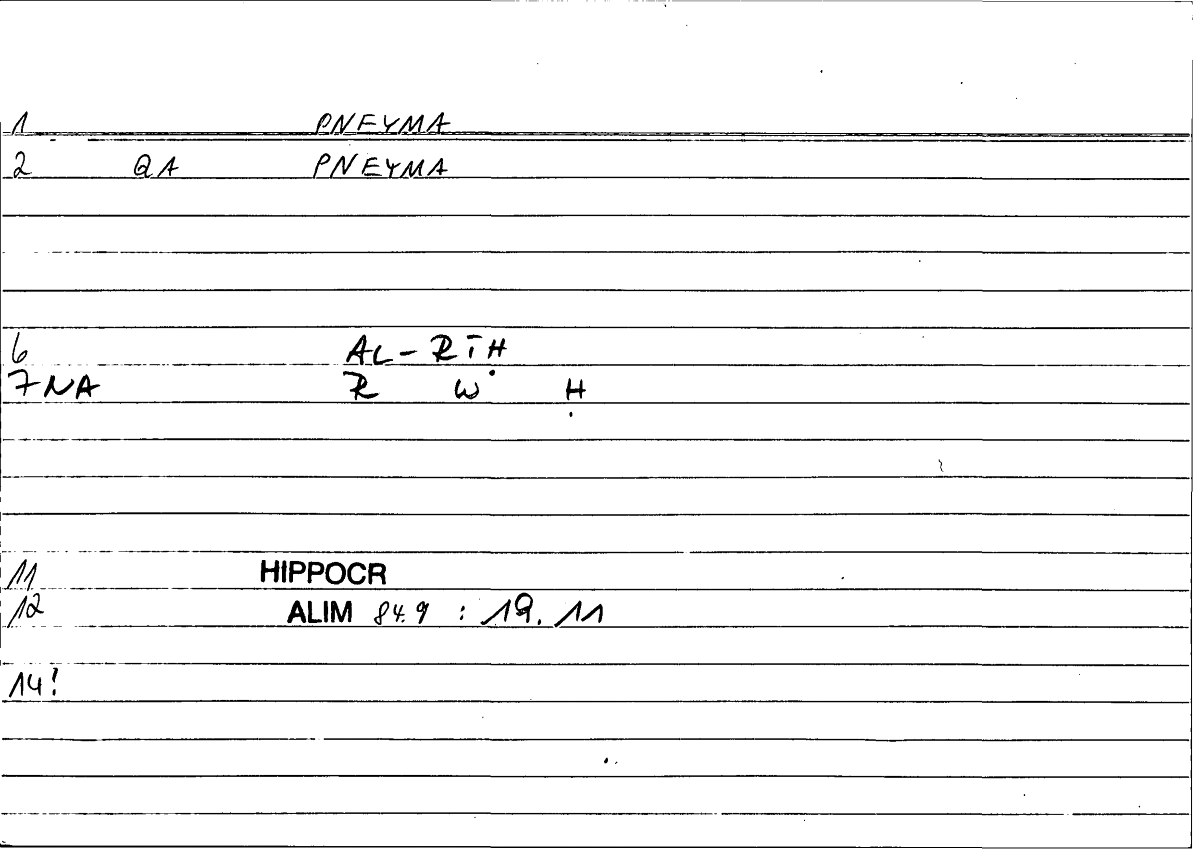 1 PNEYMA
2 QA PNEYMA
6 AL-RĪH
7NA R W H
11 HIPPOCR
12 ALIM 84.9 : 19.11
14!